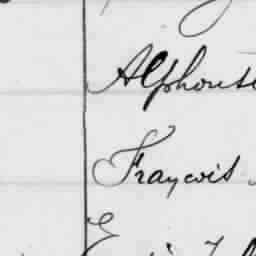 Alphonse
François